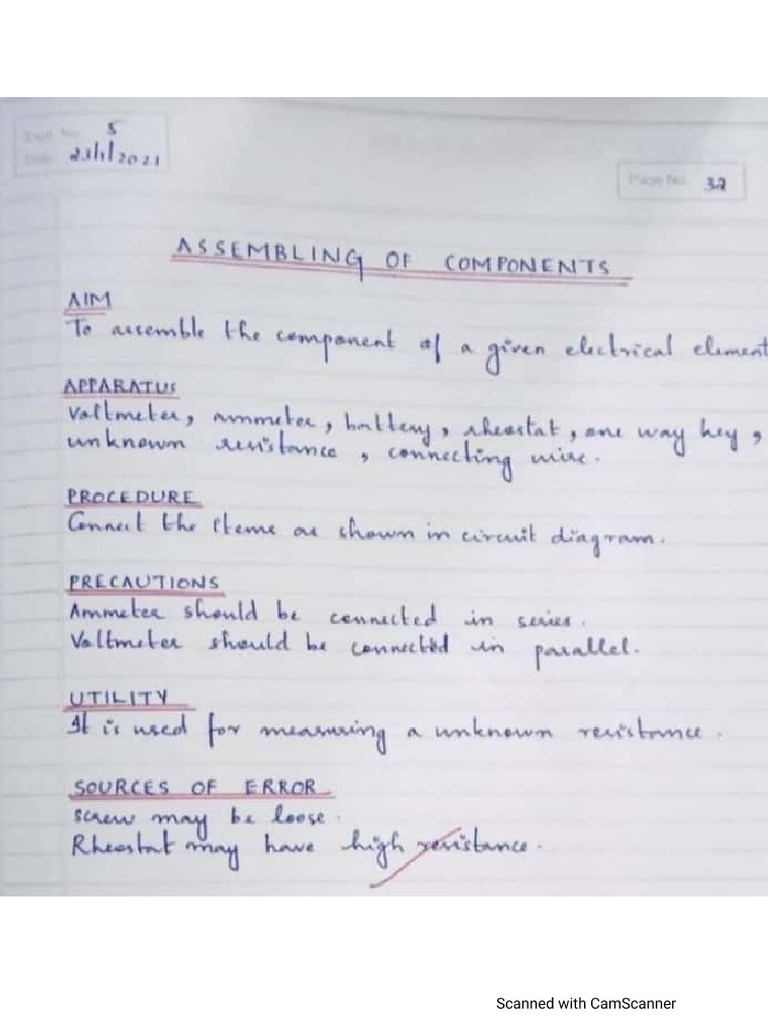 Expt. No. 5
Date 23/1/2021
Page No. 32
ASSEMBLING OF COMPONENTS
AIM
To assemble the component of a given electrical element
APPARATUS
Voltmeter, ammeter, battery, rheostat, one way key,
unknown resistance, connecting wire.
PROCEDURE
Connect the items as shown in circuit diagram.
PRECAUTIONS
Ammeter should be connected in series.
Voltmeter should be connected in parallel.
UTILITY
It is used for measuring a unknown resistance.
SOURCES OF ERROR
screw may be loose.
Rheostat may have high resistance.
Scanned with CamScanner